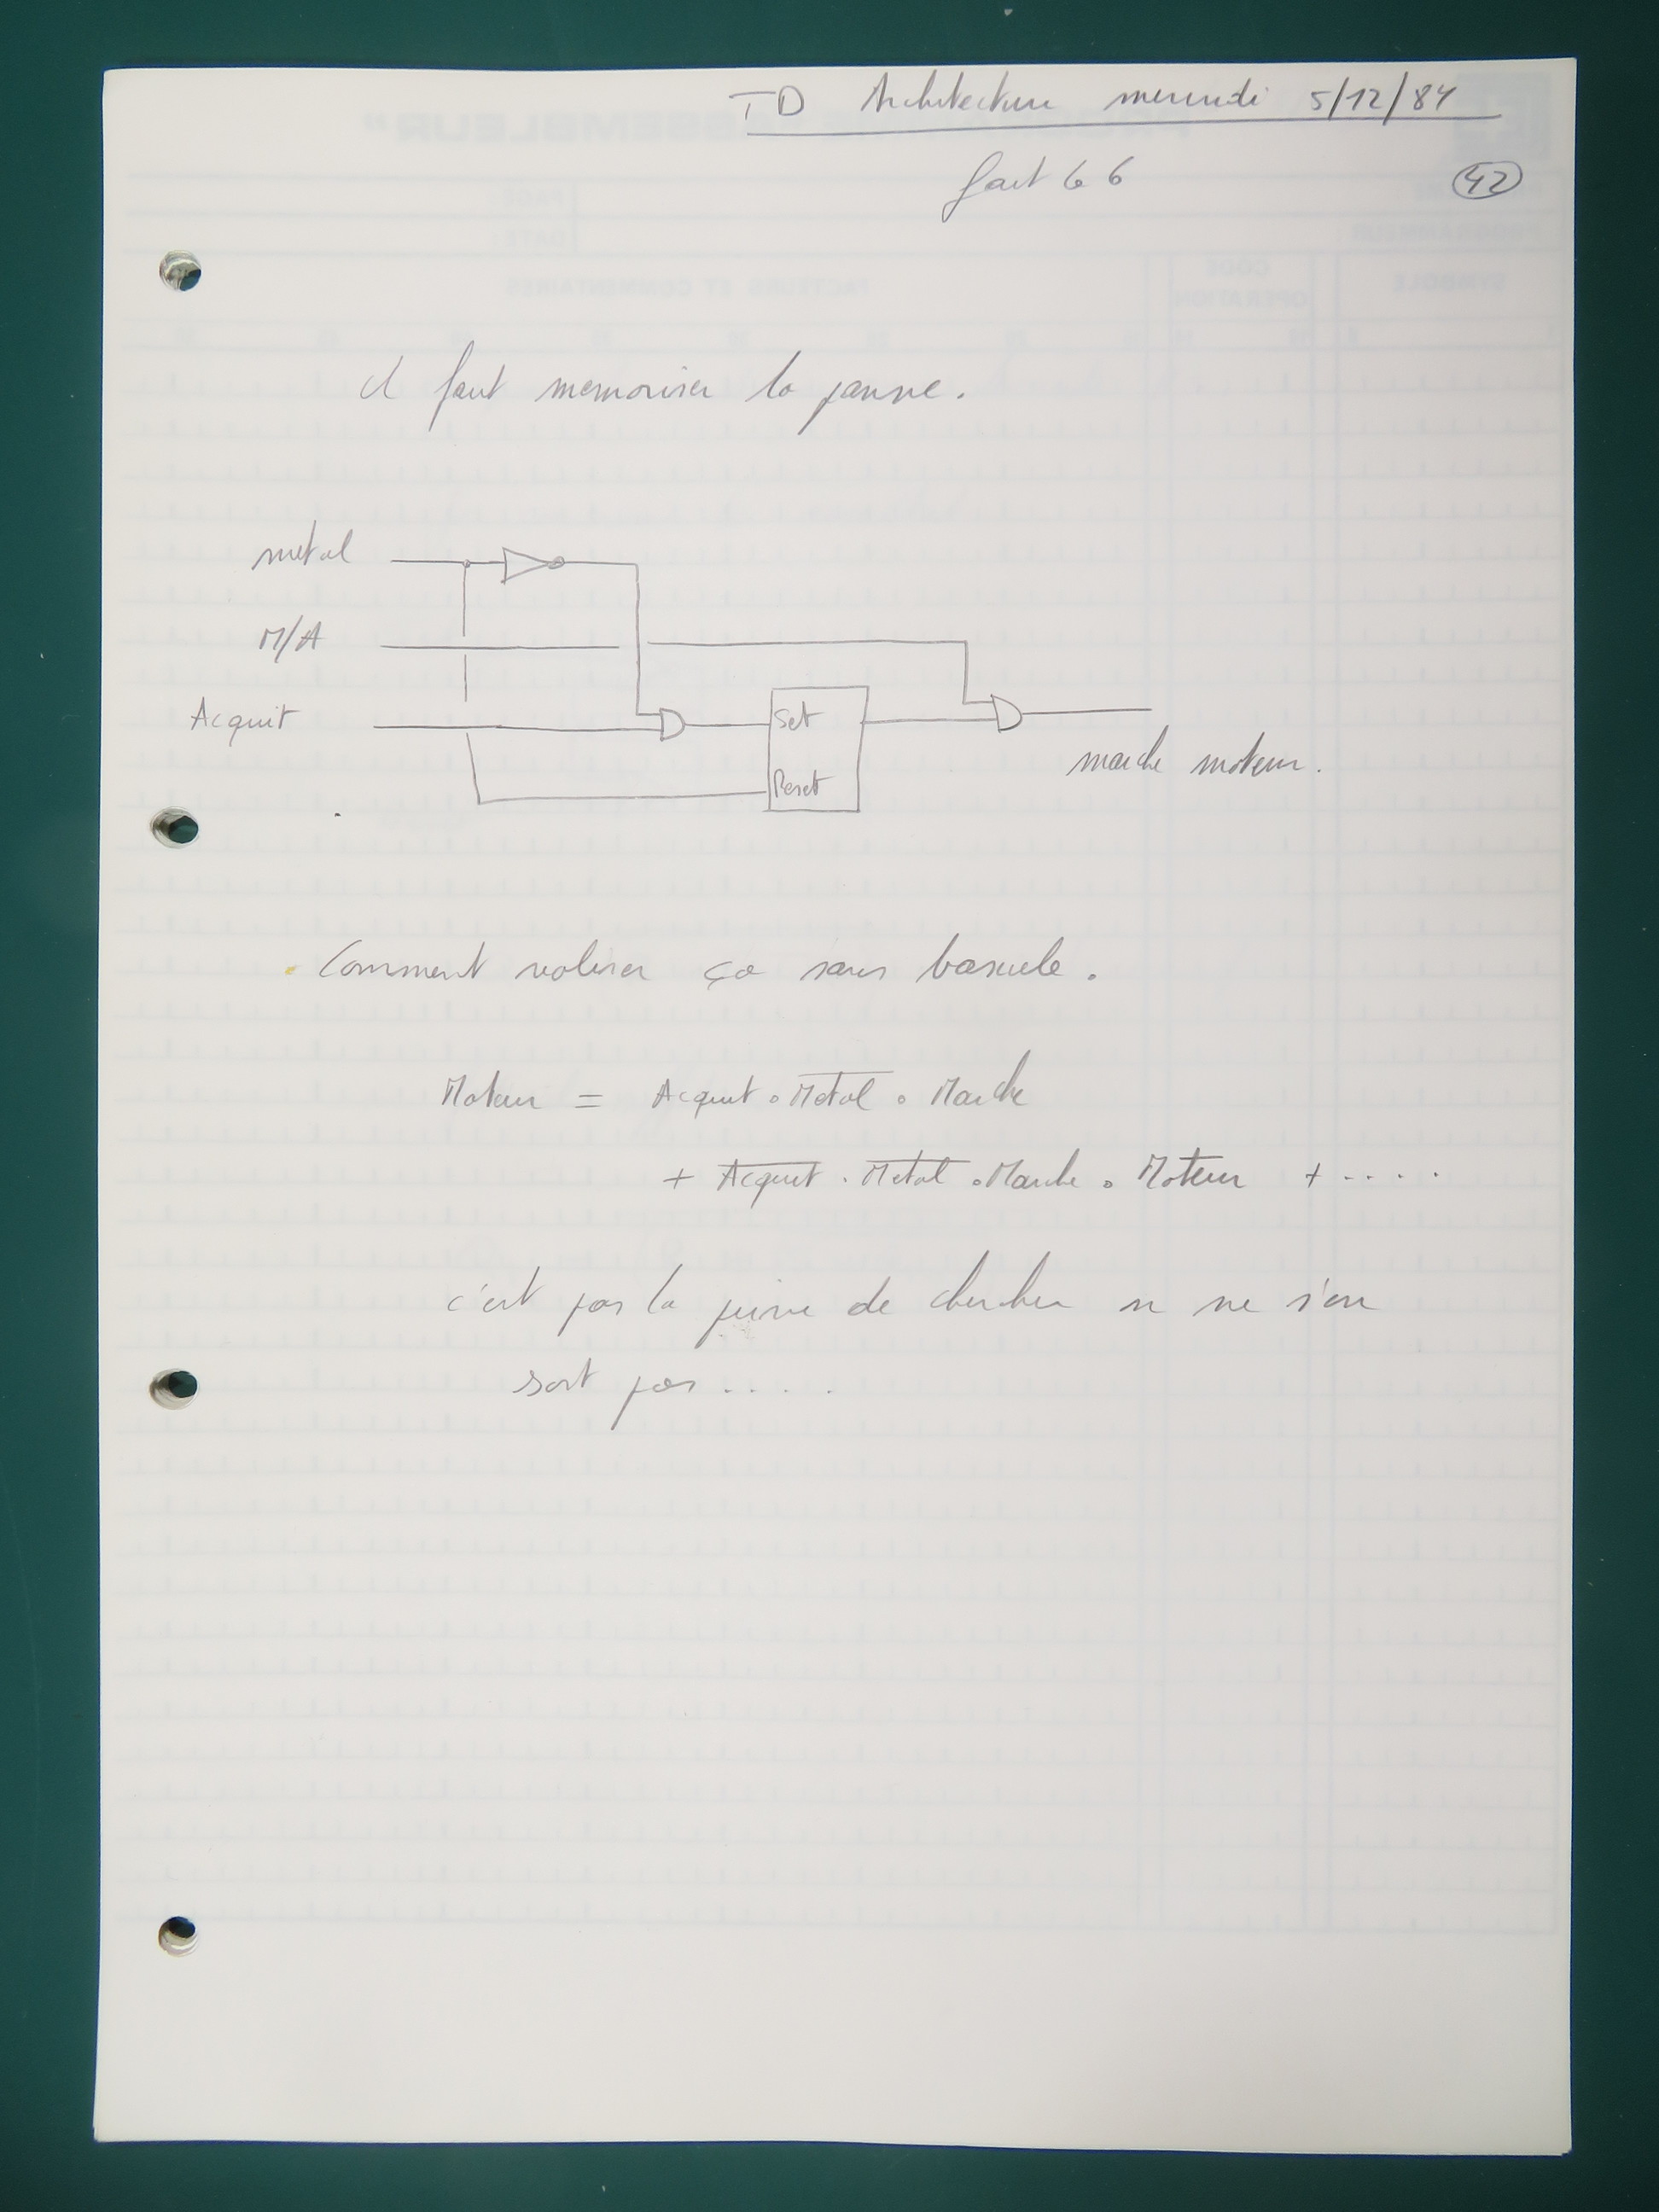 TD Architecture mercredi 5/12/84
fait le 6
42
il faut memoriser la panne.
metal
M/A
Acquit
Set
Reset
marche moteur.
Comment realiser ça sans bascule.
Moteur = Acquit . Metal . Marche
+ Acquit . Metal . Marche . Moteur + ....
c'est pas la peine de chercher on ne s'en
sort pas .....